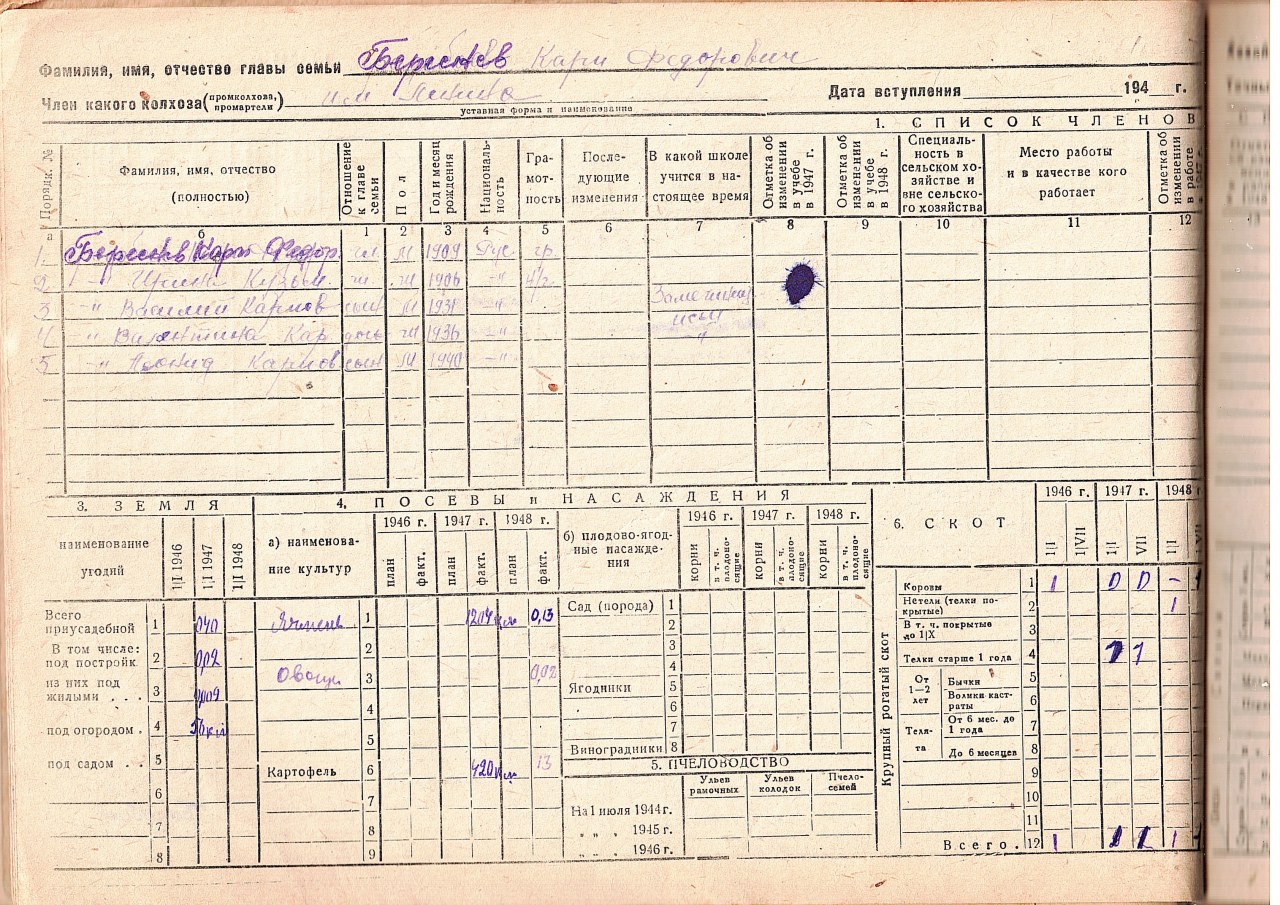 Фамилия, имя, отчество главы семьи Береснев Карп Федорович
Член какого колхоза (промколхоза, промартели) им Дата вступления 194 г.
уставная форма и наименование
1. СПИСОК ЧЛЕНОВ
Порядк. №
Фамилия, имя, отчество (полностью)
Отношение к главе семьи
Пол
Год и месяц рождения
Националь-ность
Гра-мот-ность
После-дующие изменения
В какой школе учится в на-стоящее время
Отметка об изменении в учебе в 1947 г.
Отметка об изменении в учебе в 1948 г.
Специаль-ность в сельском хо-зяйстве и вне сельско-го хозяйства
Место работы и в качестве кого работает
Отметка об изменении в работе
а б 1 2 3 4 5 6 7 8 9 10 11 12
1. Береснев Карп Федор. гл. М 1909 Рус гр.
2 -"- Кузьм. ж. Ж 1906 -"- н/г
3 -"- Василий Карпов сын М 193 -"-
4 -"- Валентина Кар дочь Ж 1936 -"- "
5 -"- Леонид Карпов сын М 1940 -"-
3. ЗЕМЛЯ
наименование угодий
1|I 1946
1|I 1947
1|I 1948
Всего приусадебной 1 040
В том числе: под постройк. 2 0,02
из них под жилыми . . . 3 0,09
под огородом . 4
под садом . . 5
6
7
8
4. ПОСЕВЫ и НАСАЖДЕНИЯ
а) наименова-ние культур
1946 г. 1947 г. 1948 г.
план факт. план факт. план факт.
Ячмень 1 0,13
2
Овощи 3 0,02
4
5
Картофель 6 420 13
7
8
9
б) плодово-ягод-ные насажде-ния
1946 г. 1947 г. 1948 г.
корни в т. ч. плодоно-сящие корни в т. ч. плодоно-сящие корни в т. ч. плодоно-сящие
Сад (порода) 1
2
3
4
Ягодники 5
6
7
Виноградники 8
5. ПЧЕЛОВОДСТВО
Ульев рамочных
Ульев колодок
Пчело-семей
На 1 июля 1944 г.
" " " 1945 г.
" " " 1946 г.
6. СКОТ
1946 г. 1947 г. 1948
1|I 1|VII 1|I VII 1|I
Крупный рогатый скот
Коровы 1 1 -
Нетели (телки по-крытые) 2 1
В т. ч. покрытые до 1|X 3
Телки старше 1 года 4 1 1
От 1—2 лет
Бычки 5
Волики каст-раты 6
Теля-та
От 6 мес. до 1 года 7
До 6 месяцев 8
9
10
11
Всего. 12 1 1